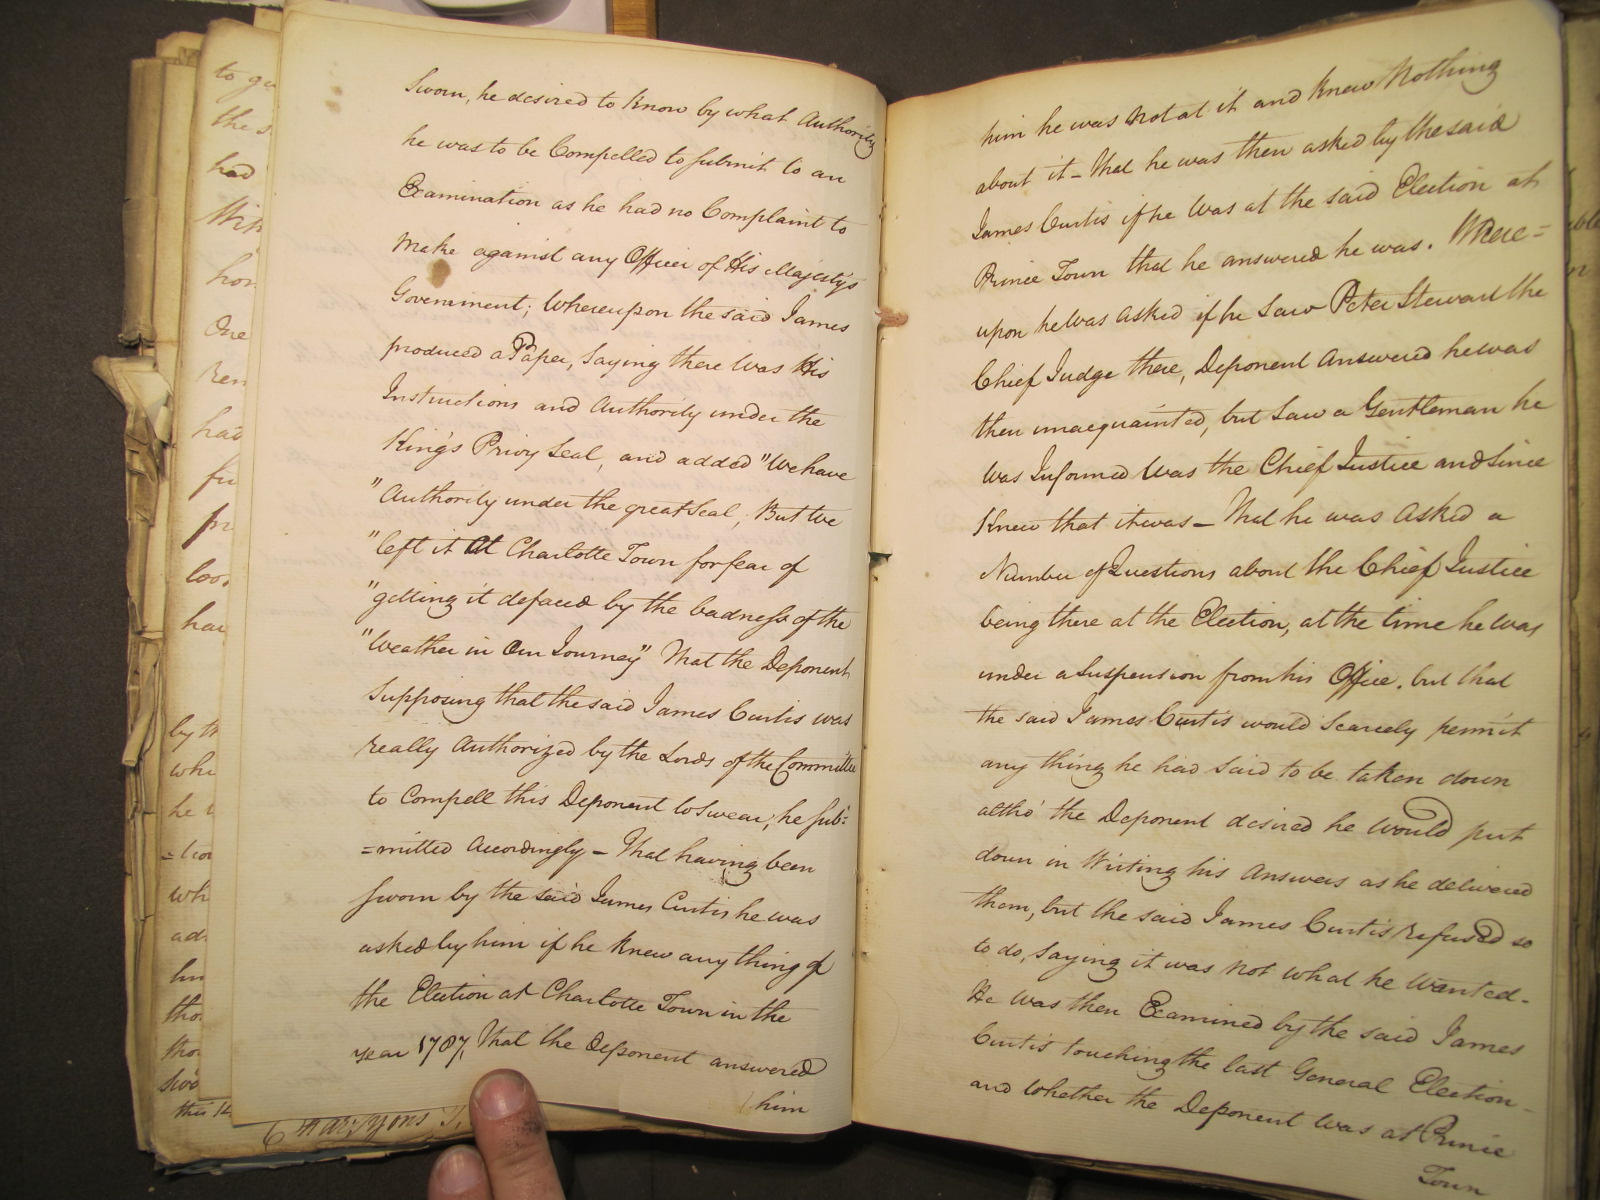 Sworn, he desired to know by what Authority
he was to be Compelled to submit to an
Examination as he had no Complaint to
make against any Officer of His Majesty's
Government; Whereupon the said James
produced a Paper, Saying there was His
Instructions and Authority under the
King's Privy Seal, and added "We have
"Authority under the great Seal; But We
"left it at Charlotte Town for fear of
"getting it defaced by the badness of the
"Weather in Our Journey" That the Deponent
Supposing that the said James Curtis was
really Authorized by the Lords of the Committee
to Compell this Deponent to Swear, he sub=
=mitted Accordingly – That having been
Sworn by the said James Curtis he was
asked by him if he knew any thing of
the Election at Charlotte Town in the
year 1787, That the Deponent answered
him
him he was not at it and knew Nothing
about it – That he was then asked by the said
James Curtis if he was at the said Election at
Prince Town that he answered he was. Where=
upon he was asked if he Saw Peter Stewart the
Chief Judge there, Deponent Answered he was
then unacquainted, but Saw a Gentleman he
was Informed was the Chief Justice and Since
knew that it was – That he was Asked a
Number of Questions about the Chief Justice
being there at the Election, at the time he was
under a Suspension from his Office. but that
the said James Curtis would Scarcely permit
any thing he had said to be taken down
altho' the Deponent desired he would put
down in Writing his Answers as he delivered
them, but the said James Curtis refused so
to do, Saying it was not what he Wanted –
He was then Examined by the said James
Curtis touching the last General Election –
and Whether the Deponent was at Prince
Town
to
the
had
One
had
by
he
who
this